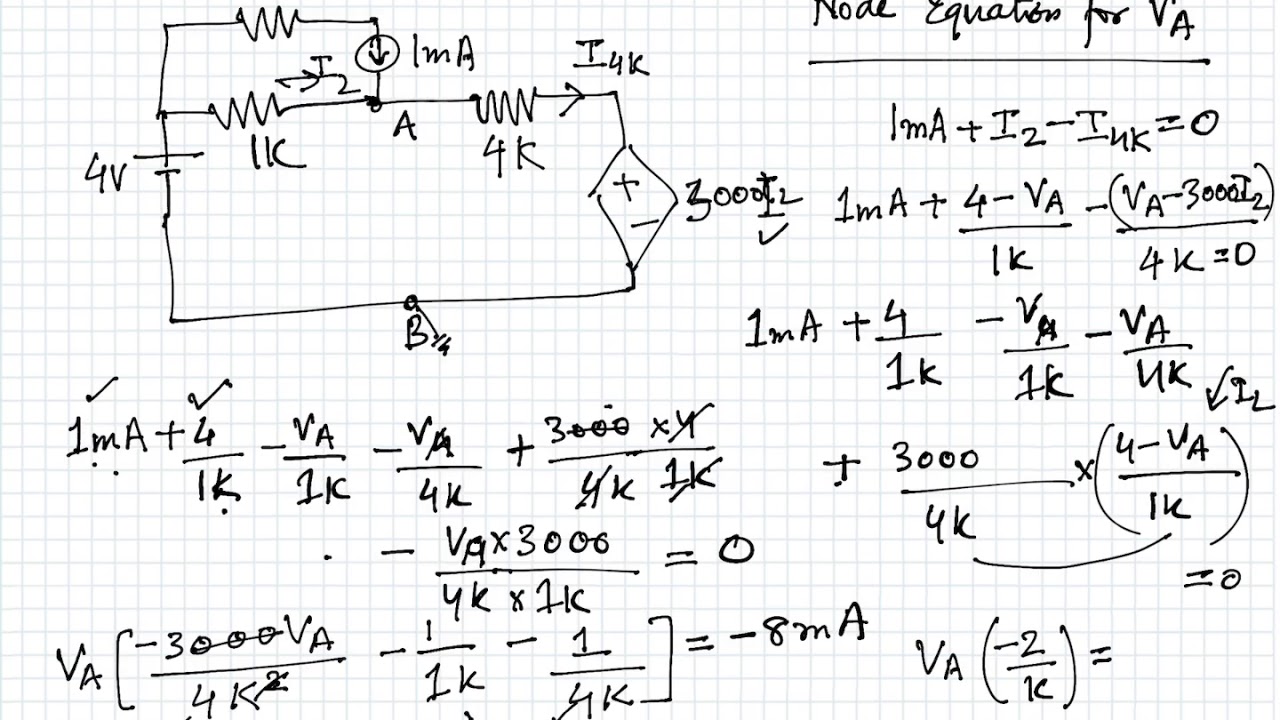 Node Equation for VA
1mA
I2
I4K
A
1K
4K
4V
+
−
3000I2
B
1mA + I2 − I4K = 0
1mA + (4 − VA)/1K − (VA − 3000I2)/4K = 0
1mA + 4/1K − VA/1K − VA/4K
+ 3000/4K × ((4 − VA)/1K) = 0
I2
1mA + 4/1K − VA/1K − VA/4K + (3000 × 4)/(4K 1K)
− (VA × 3000)/(4K × 1K) = 0
VA [−3000VA/4K² − 1/1K − 1/4K] = −8mA
VA (−2/K) =